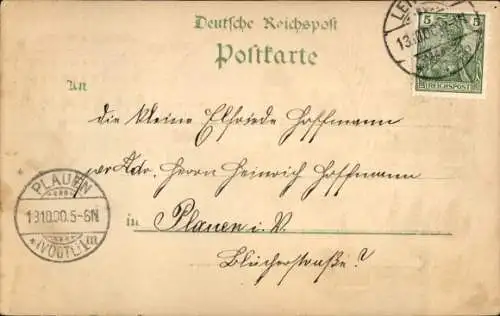 Deutsche Reichspost
Postkarte
5 5
REICHSPOST
LEI
13.10.00
An
die kleine Elfriede Hoffmann
per Adr. Herrn Heinrich Hoffmann
in Plauen i. V.
Blücherstraße?
PLAUEN
13.10.00.5-6N
*(VOGTL)1m